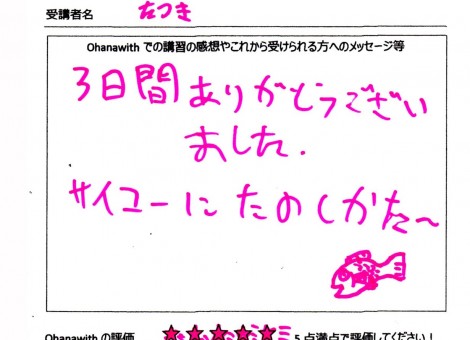 受講者名 たつき
Ohanawith での講習の感想やこれから受けられる方へのメッセージ等
3日間ありがとうござい
ました.
サイコーにたのしかた〜
Ohanawith の評価 ★★★★★ 5 点満点で評価してください!